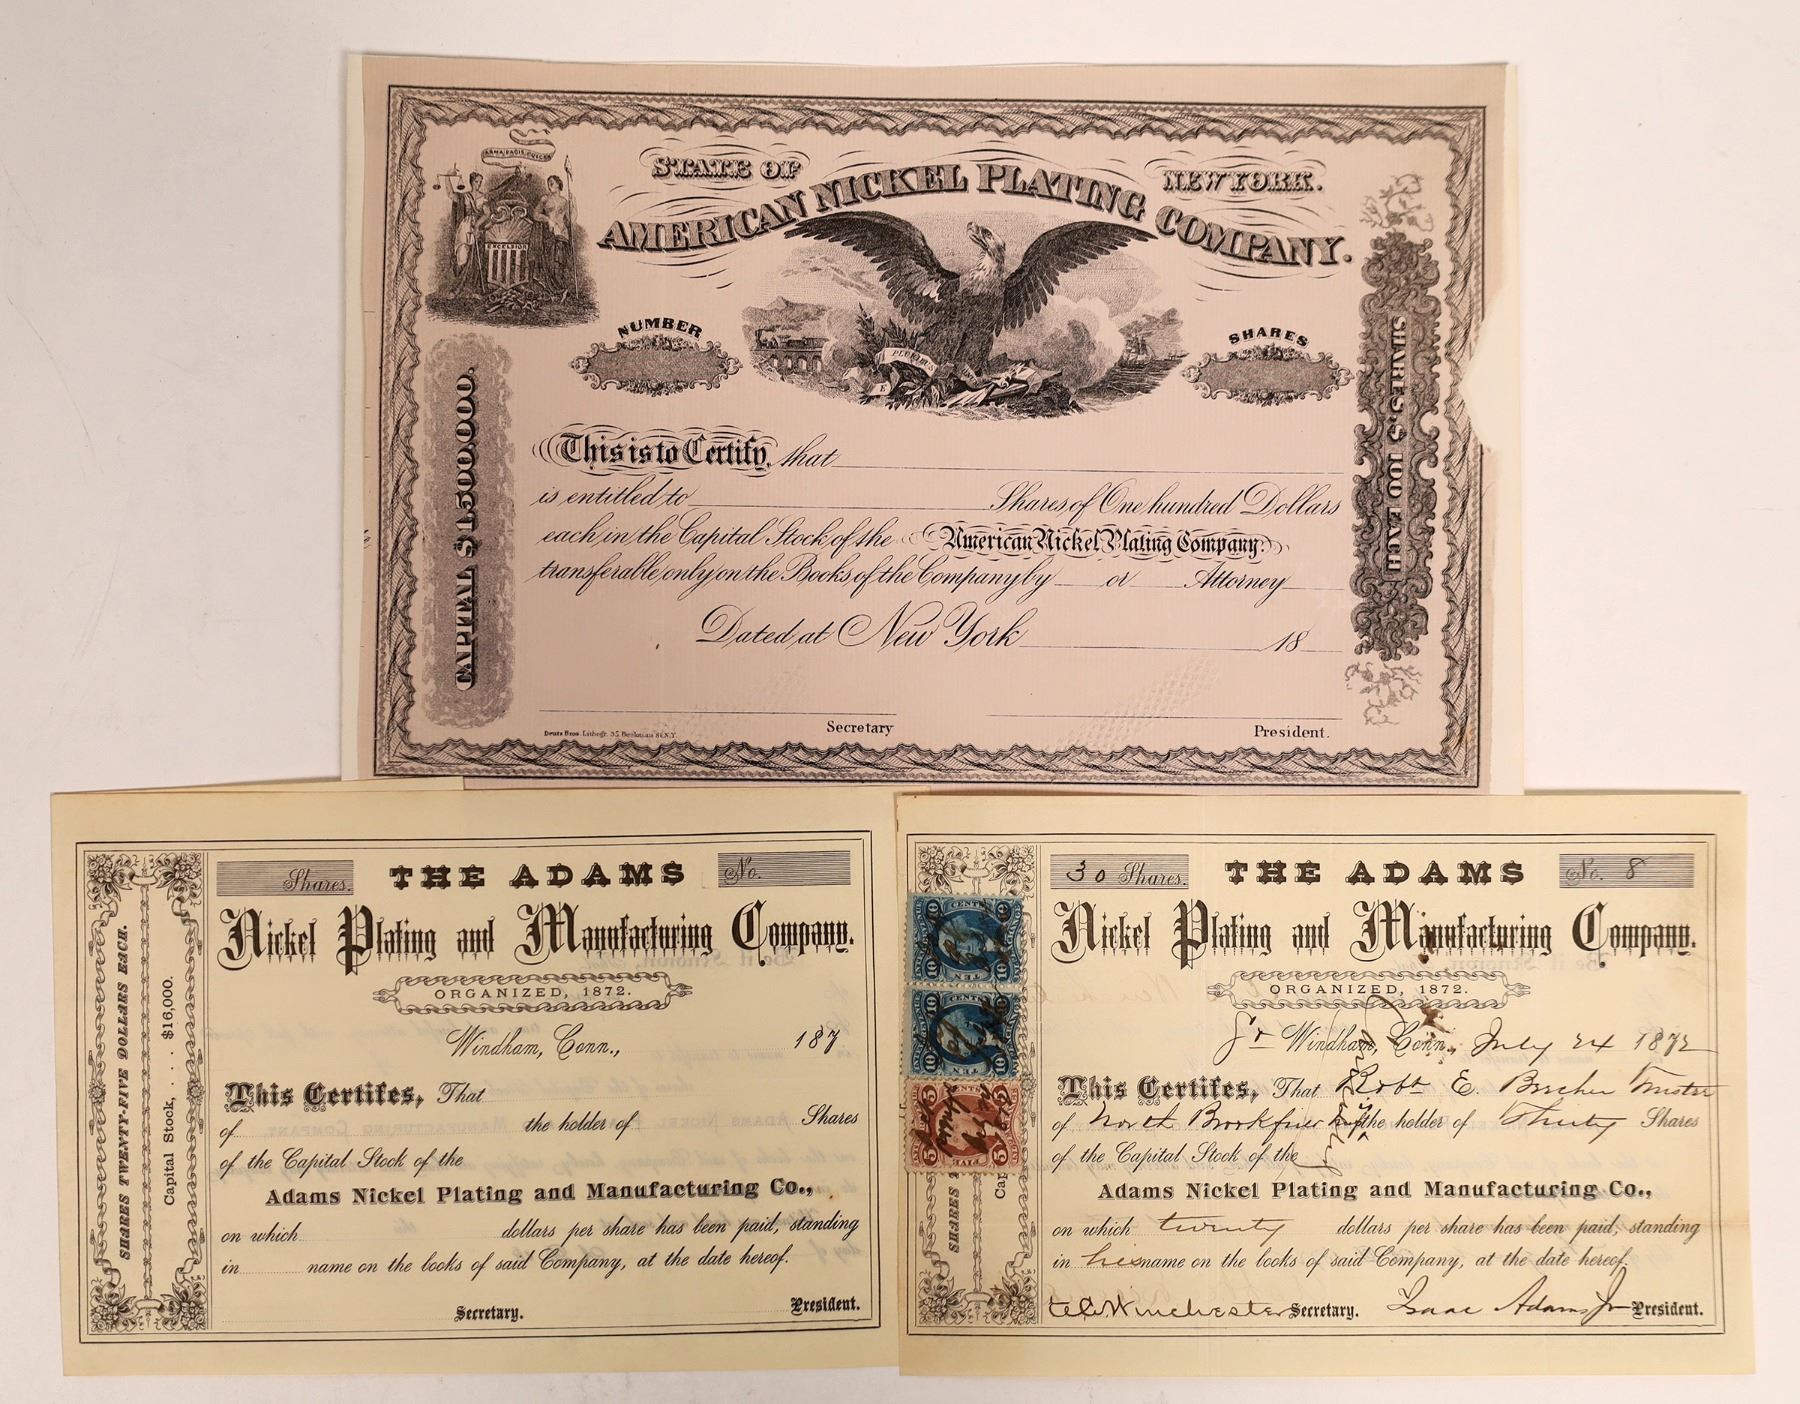 ARMA PACIS FULCRA
EXCELSIOR
STATE OF NEW YORK.
AMERICAN NICKEL PLATING COMPANY.
NUMBER
SHARES
E PLURIBUS
CAPITAL $1,500,000.
SHARES $100 EACH
This is to Certify, that
is entitled to Shares of One hundred Dollars
each in the Capital Stock of the American Nickel Plating Company.
transferable only on the Books of the Company by or Attorney
Dated at New York 18
Secretary
President.
Lithogr. 35 Beekman St. N.Y.
SHARES TWENTY-FIVE DOLLARS EACH.
Capital Stock, . . . $16,000.
Shares. THE ADAMS No.
Nickel Plating and Manufacturing Company.
ORGANIZED, 1872.
Windham, Conn., 187
This Certifes, That
of the holder of Shares
of the Capital Stock of the
Adams Nickel Plating and Manufacturing Co.,
on which dollars per share has been paid, standing
in name on the books of said Company, at the date hereof.
Secretary. President.
SHARES
Cap
10 CENTS 10
10 TEN 10
10 CENTS 10
10 TEN 10
5 CENTS 5
5 FIVE 5
30 Shares. THE ADAMS No. 8
Nickel Plating and Manufacturing Company.
ORGANIZED, 1872.
Windham, Conn., July 24 1872
This Certifes, That Robt E. Beecher Trustee
of North Brookfield the holder of Thirty Shares
of the Capital Stock of the
Adams Nickel Plating and Manufacturing Co.,
on which twenty dollars per share has been paid, standing
in his name on the books of said Company, at the date hereof.
Winchester Secretary. Isaac Adams Jr President.